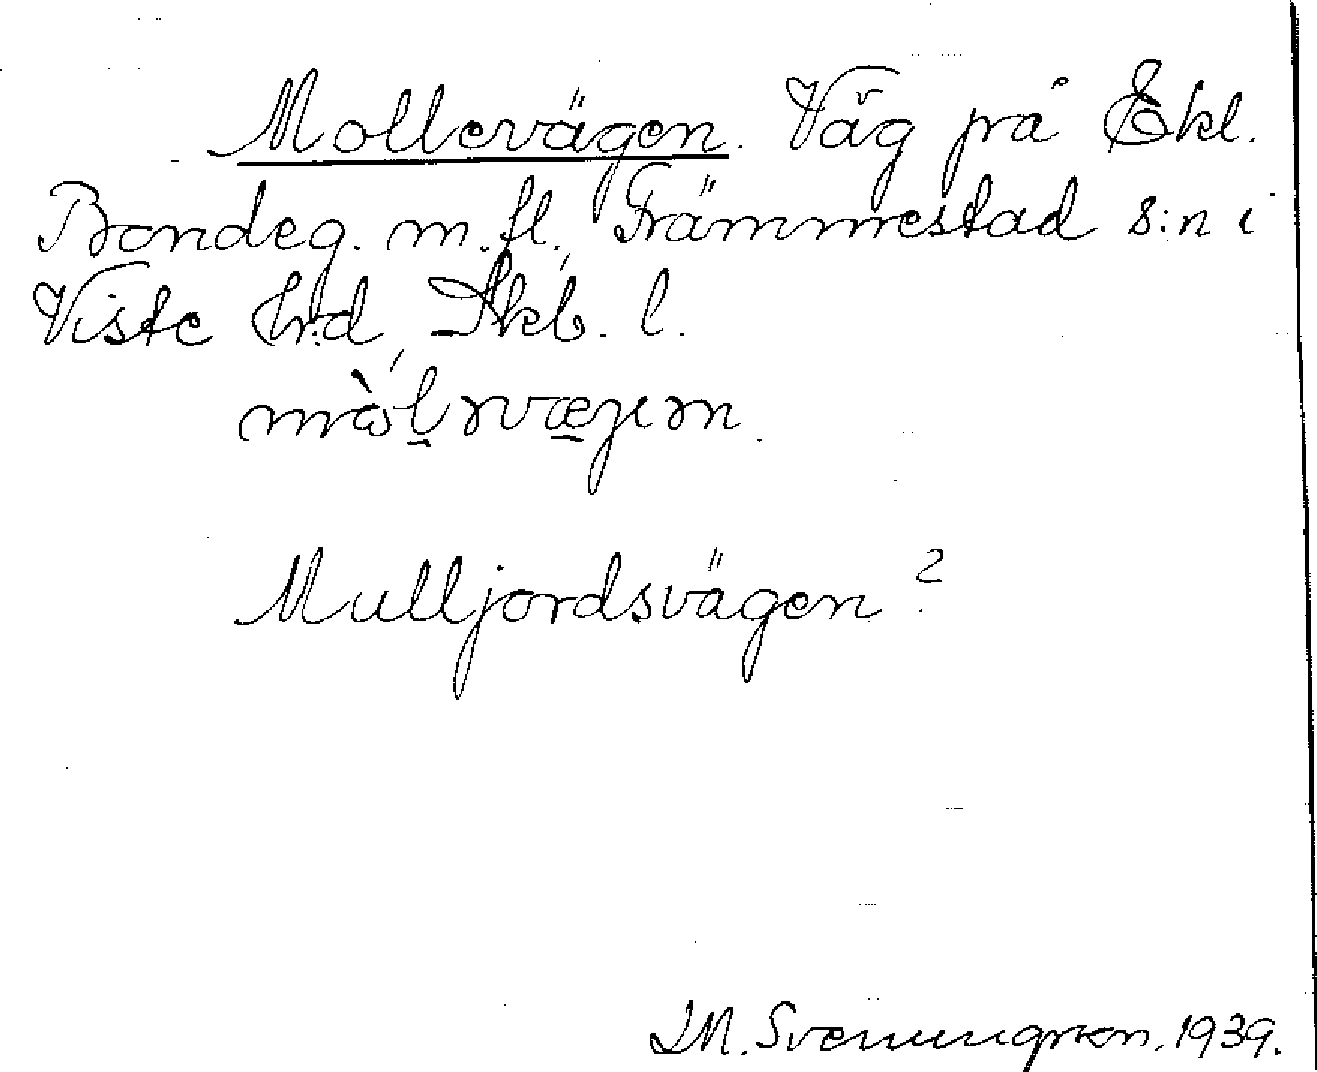 Mollevägen. Väg på Ekl.
Bondeg. m. fl. Främmestad s:n i
Viste hrd, Skb. l.
Mulljordsvägen?
I.M. Svenungsson. 1939.